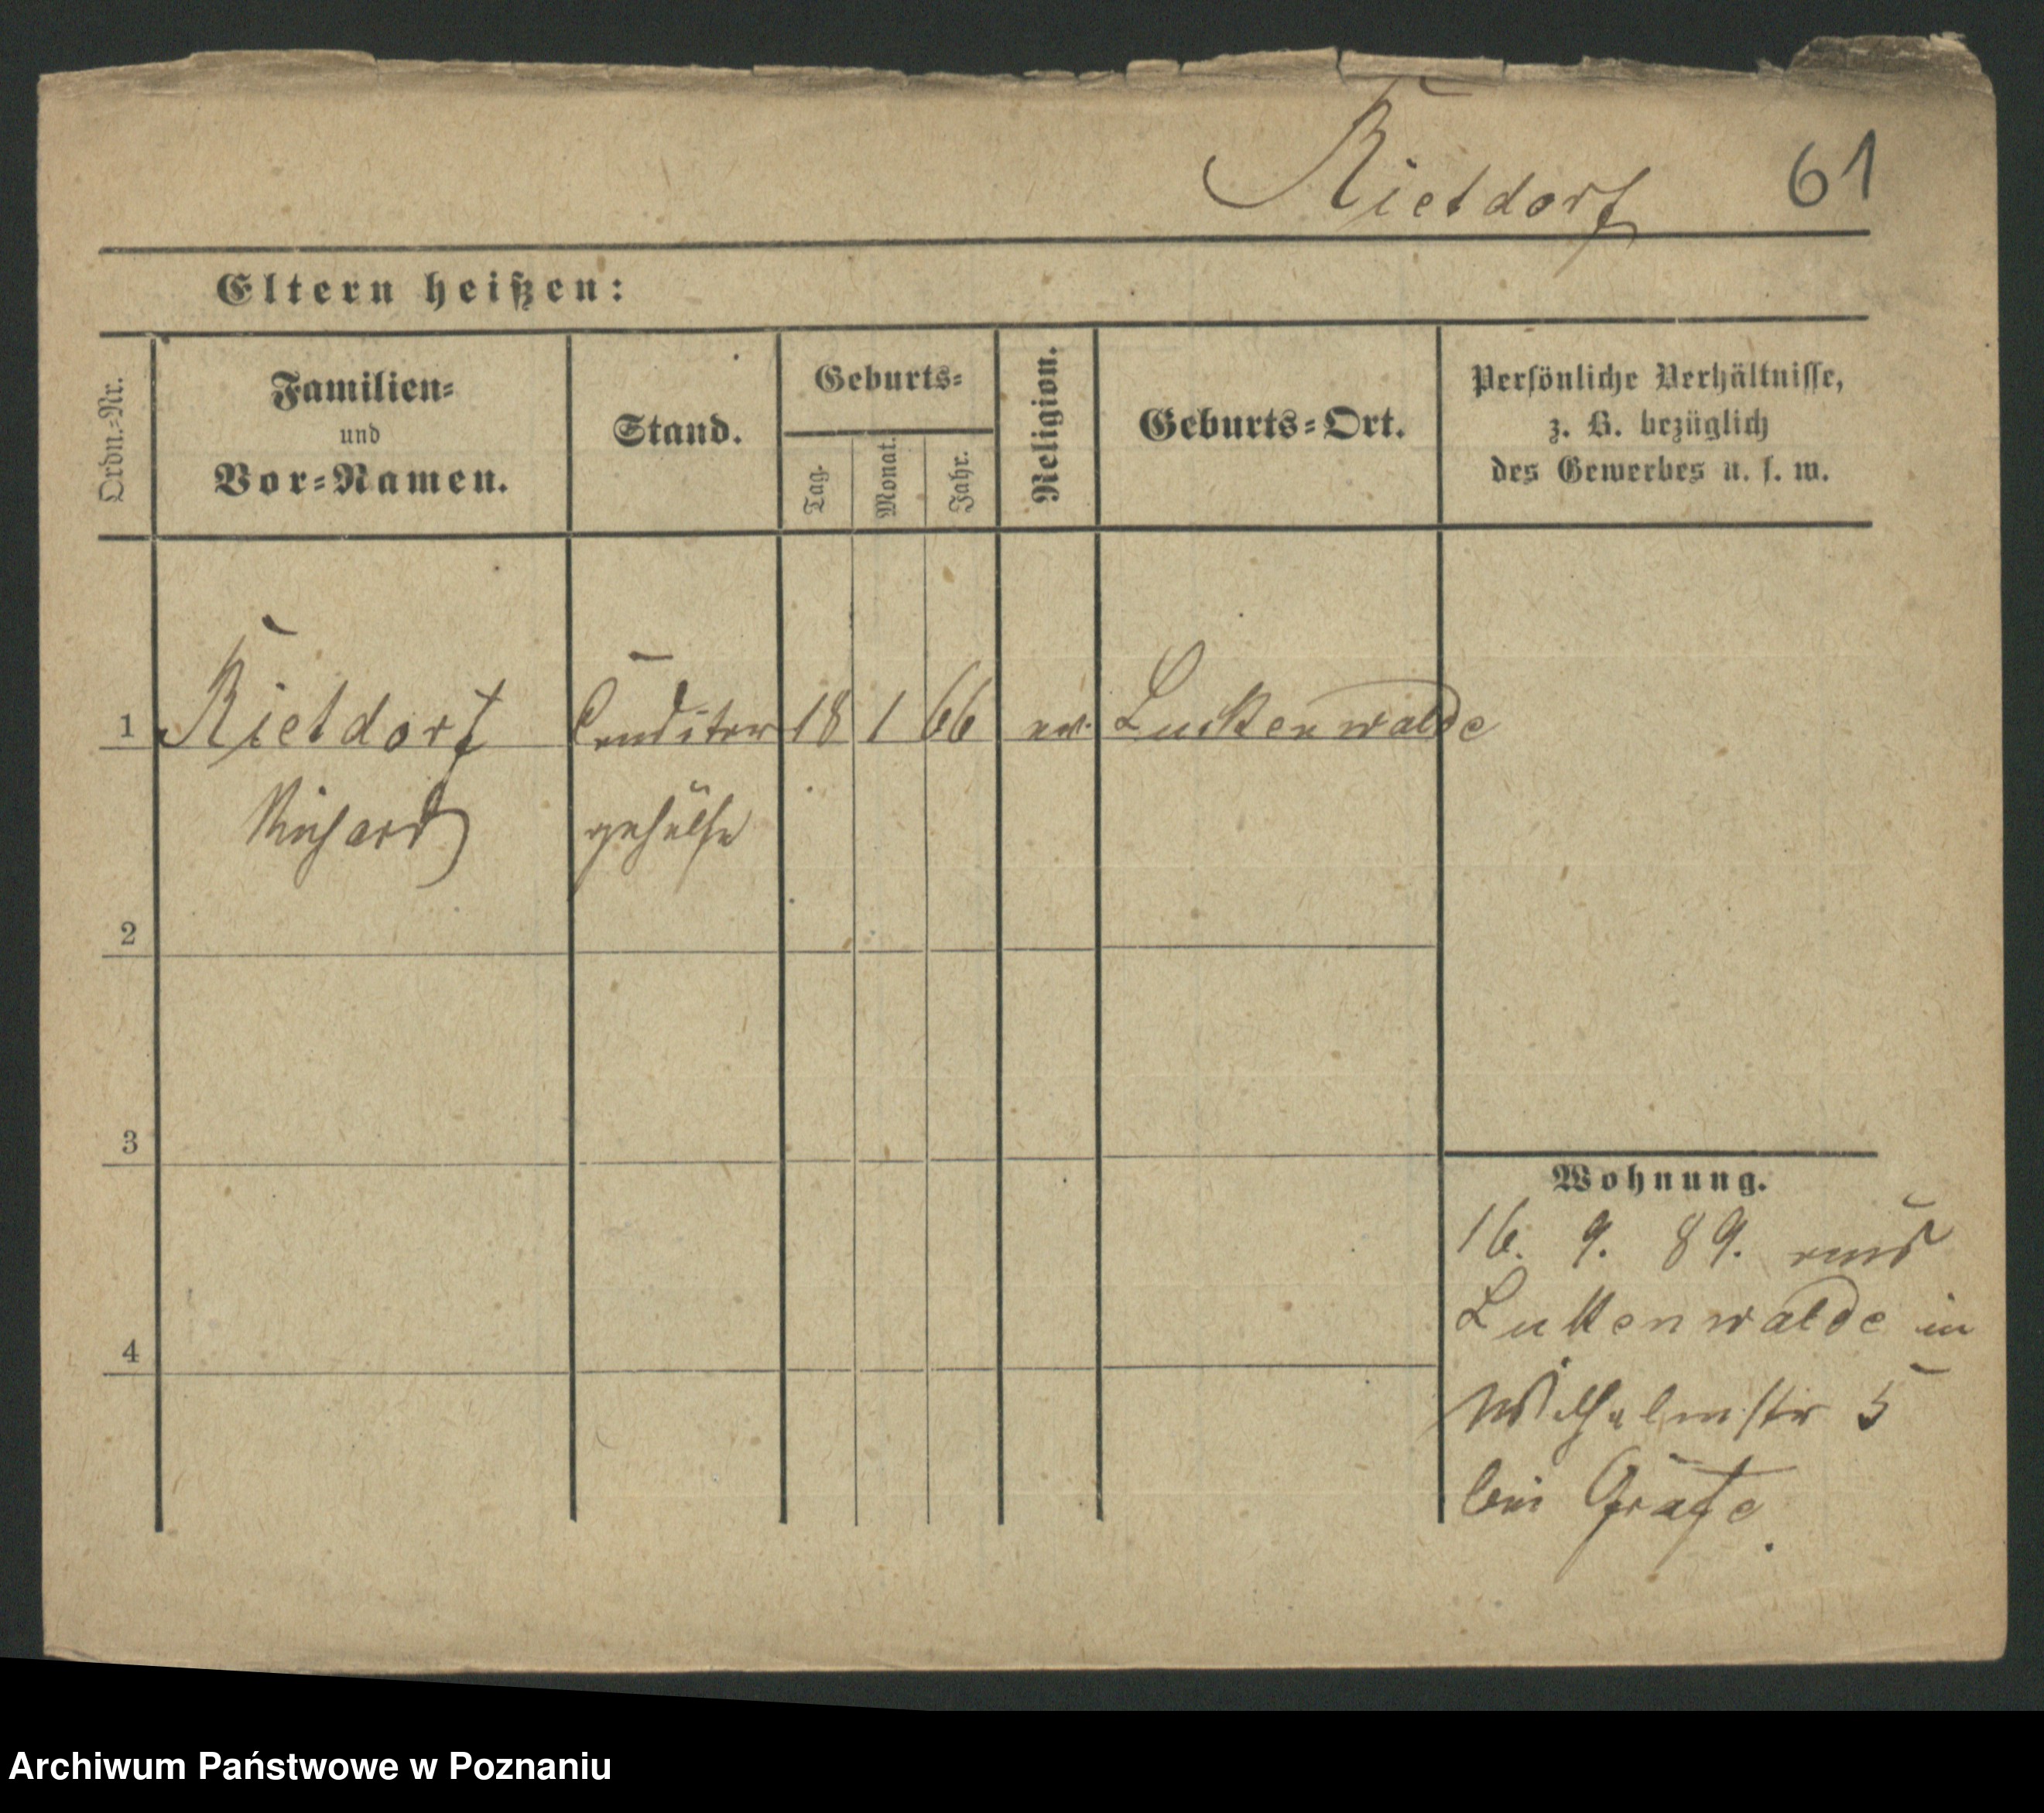 Rietdorf 61
Eltern heißen:
Ordn.-Nr.
Familien-
und
Vor-Namen.
Stand.
Geburts-
Tag.
Monat.
Jahr.
Religion.
Geburts-Ort.
Persönliche Verhältnisse,
z. B. bezüglich
des Gewerbes u. s. w.
1 Rietdorf Conditor 18 1 66 ev. Luckenwalde
Richard gehülfe
2
3
4
Wohnung.
16. 9. 89. aus
Lukkenwalde in
Wilhelmstr 5
bei Gräfe.
Archiwum Państwowe w Poznaniu